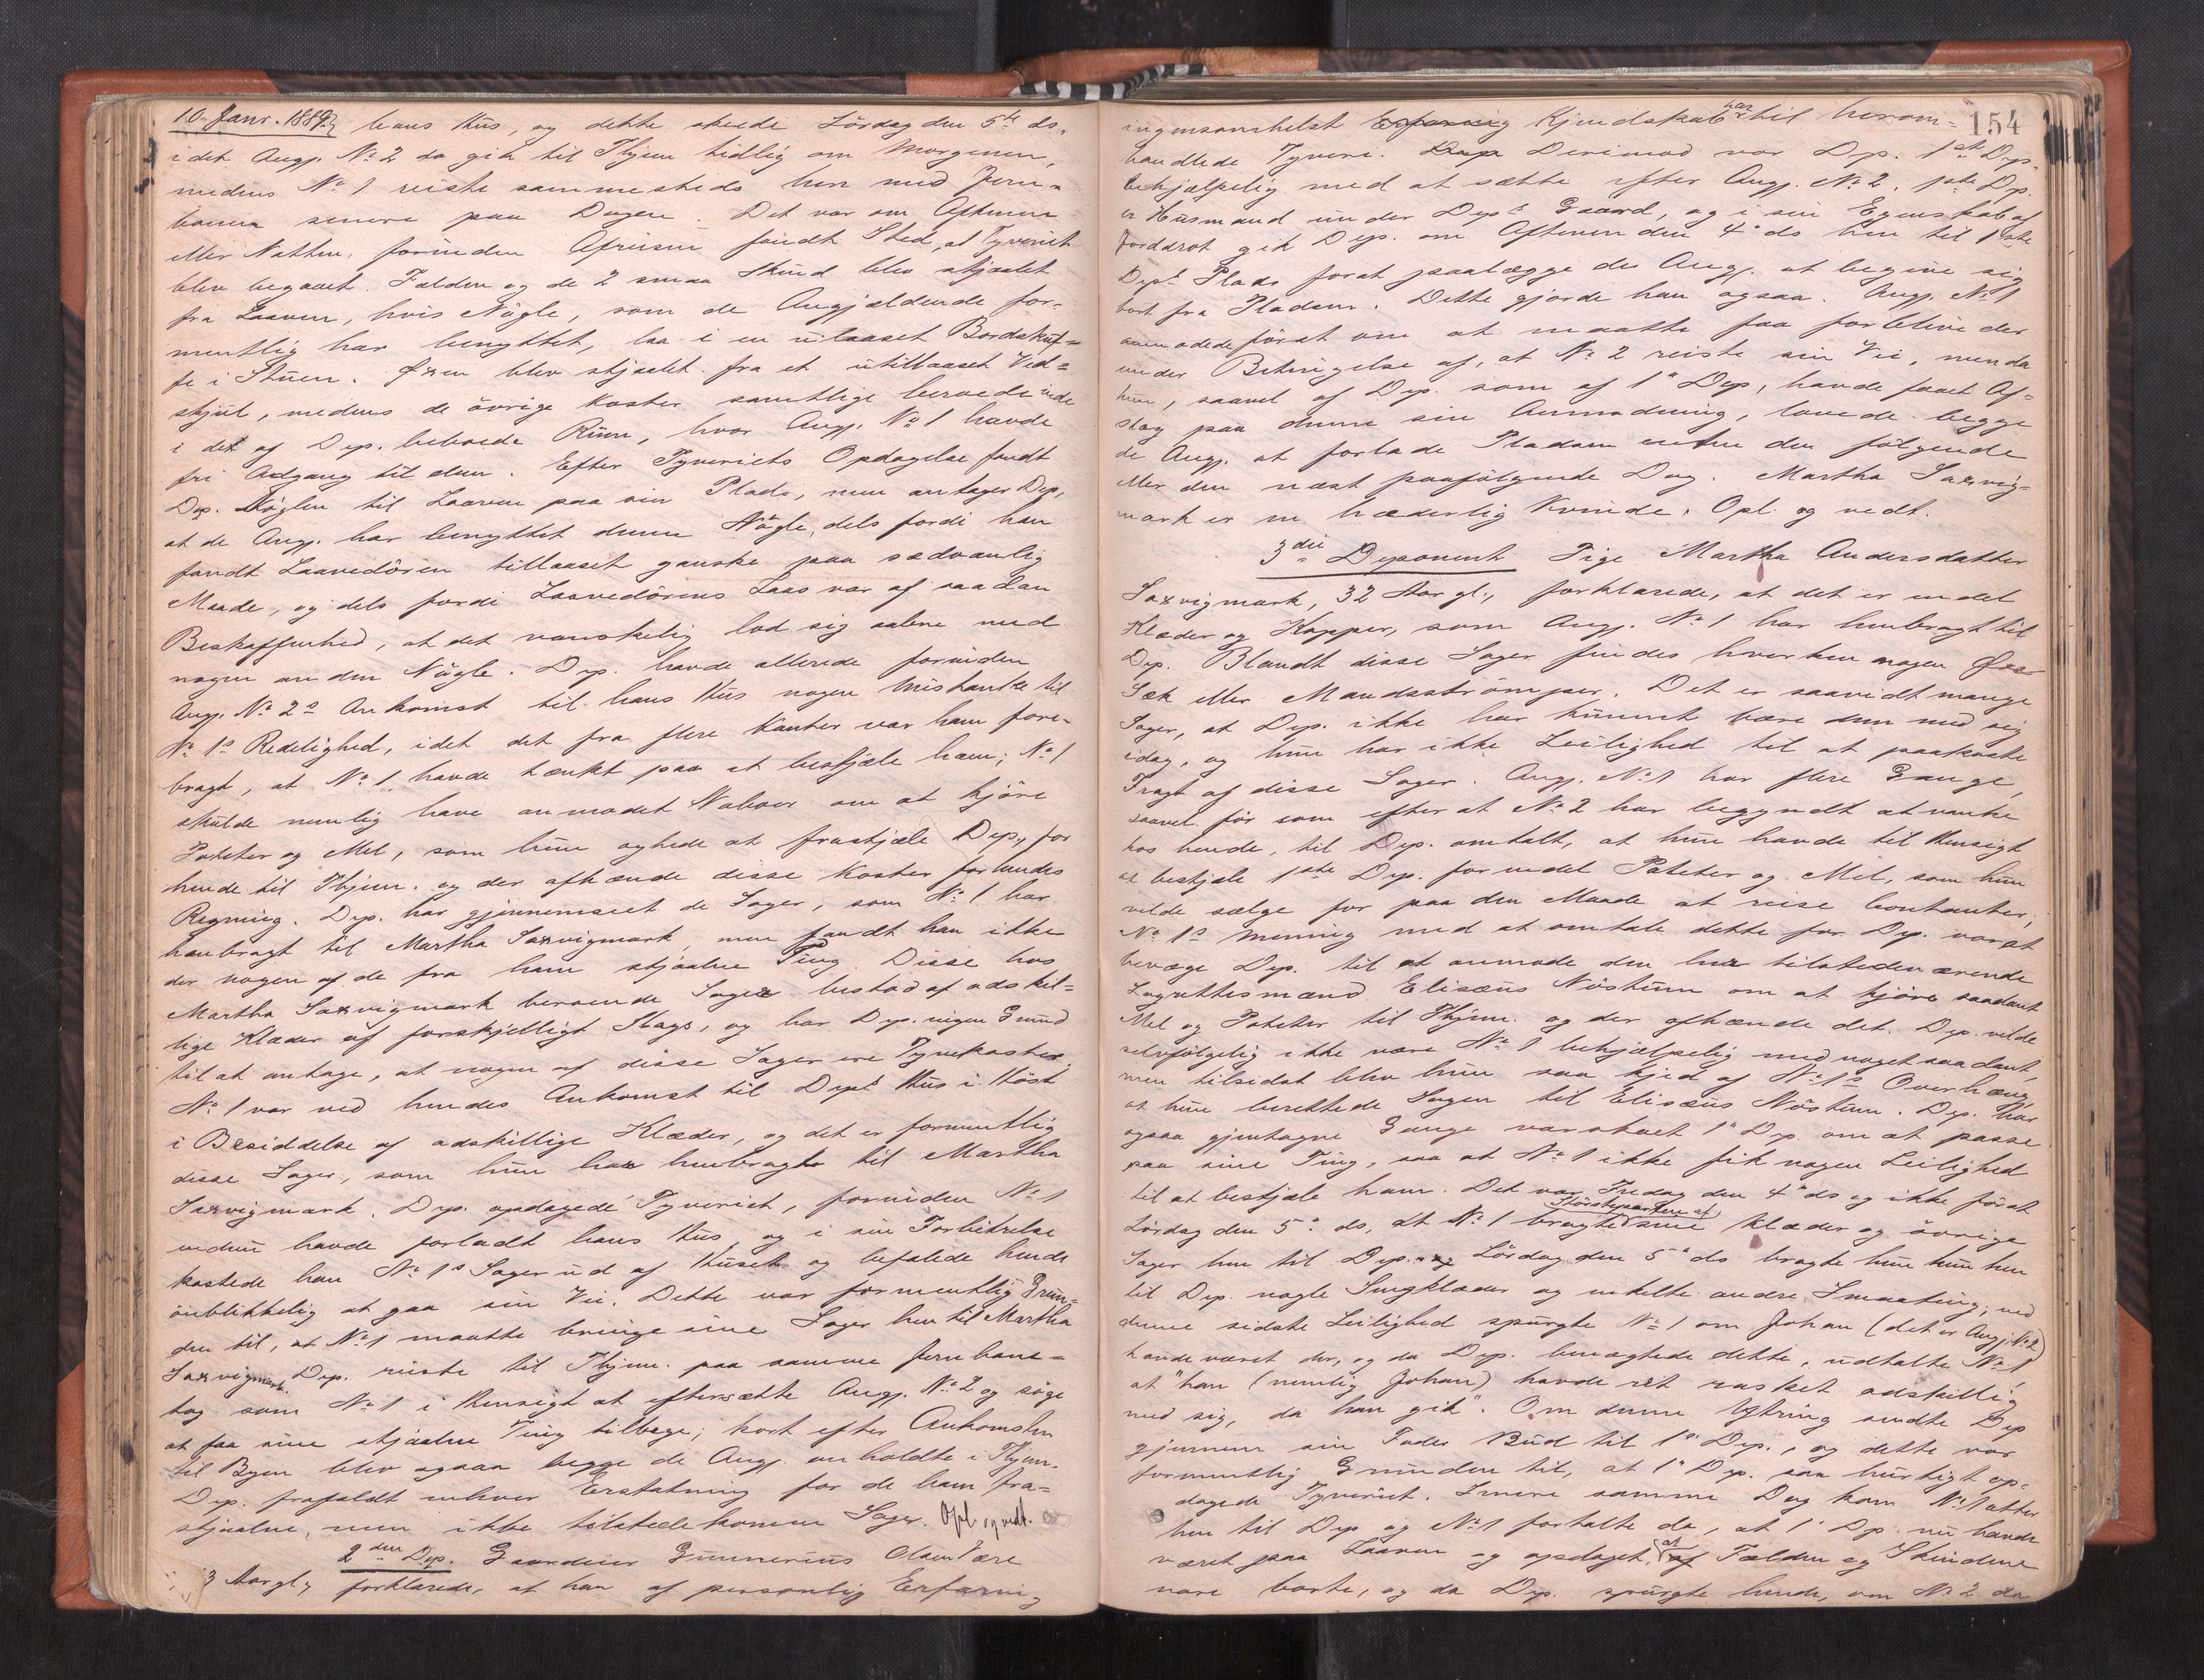 10 Janr. 1889.
hans Hus, og dette skede Lördag den 5te ds.,
idet Angj. No 2 da gik til Thjem tidlig om Morgenen,
medens No 1 reiste sammesteds hen med Jern-
banen senere paa Dagen. Det var om Aftenen
eller Natten, forinden Afreisen fandt Sted, at Tyveriet
blev begaaet. Falden og de 2 smaa Skind blev stjaalet
fra Laaven, hvis Nögle, som de Angjældende for-
mentlig har benyttet, laa i en ulaaset Bordskuf-
fe i Stuen. Öxen blev stjaalet fra et utillaaset Ved-
skjul, medens de övrige Koster samtlige beroede inde
i det af Dep. beboede Rum, hvor Angj. No 1 havde
fri Adgang til dem. Efter Tyveriets Opdagelse fandt
Dep. Nöglen til Laaven paa sin Plads, men antager Dep.,
at de Angj. har benyttet denne Nögle, dels fordi han
fandt Laavedören tillaaset ganske paa sædvanlig
Maade, og dels fordi Laavedörens Laas var af saadan
Beskaffenhed, at det vanskelig lod sig aabne med
nogen anden Nögle. Dep. havde allerede forinden
Angj. No 2s Ankomst til hans Hus nogen Mistanke til
No 1s Redelighed, idet det fra flere Kanter var ham fore-
bragt, at No 1 havde tænkt paa at bestjæle ham; No 1
skulde nemlig have anmodet Naboer om at kjöre
Poteter og Mel, som hun agtede at frastjæle Dep., for
hende til Thjem. og der afhænde disse Koster for hendes
Regning. Dep. har gjennemseet de Sager, som No 1 har
henbragt til Martha Saxvigmark, men fandt han ikke
der nogen af de fra ham stjaalne Ting. Disse hos
Martha Saxvigmark beroende Sager bestod af adskil-
lige Klæder af forskjelligt Slags, og har Dep. ingen Grund
til at antage, at nogen af disse Sager ere Tyvekoster.
No 1 var ved hendes Ankomst til Deps Hus i Höst
i Besiddelse af adskillige Klæder, og det er formentlig
disse Sager, som hun har henbragt til Martha
Saxvigmark. Dep. opdagede Tyveriet, forinden No 1
endnu havde forladt hans Hus, og i sin Forbitrelse
kastede han No 1s Sager ud af Huset og befalede hende
öieblikkelig at gaa sin Vei. Dette var formentlig Grun-
den til, at No 1 maatte bringe sine Sager hen til Martha
Saxvigmark. Dep. reiste til Thjem. paa samme Jernbane-
tog som No 1 i Hensigt at eftersætte Angj. No 2 og söge
at faa sine stjaalne Ting tilbage; kort efter Ankomsten
til Byen blev ogsaa begge de Angj. anholdte i Thjem.
Dep. frafaldt enhver Erstatning for de ham fra-
stjaalne, men ikke tilstedekomne Sager. Opl. og vedt.
2den Dep. Gaardeier Gunnerius Olsen Være
3 Aar gl., forklarede, at han af personlig Erfaring
154
ingensomhelst Erfaring Kjendskab har til herom-
handlede Tyveri. Dep Derimod var Dp. 1ste Dep.
behjælpelig med at sætte efter Angj. No 2. 1ste Dp.
er Husmand under Deps Gaard, og i sin Egenskab af
Jorddrot gik Dep. om Aftenen den 4de ds hen til 1ste
Deps Plads forat paalægge de Angj. at begive sig
bort fra Pladsen. Dette gjorde han ogsaa. Angj. No 1
anmodede först om at maatte faa forblive der
under Betingelse af, at No 2 reiste sin Vei, men da
hun, saavel af Dep. som af 1ste Dep, havde faaet Af-
slag paa denne sin Anmodning, lovede begge
de Angj. at forlade Pladsen enten den fölgende
eller den næst paafölgende Dag. Martha Saxvig-
mark er en hæderlig Kvinde. Opl. og vedt.
3die Deponent Pige Martha Andersdatter
Saxvigmark, 32 Aar gl., forklarede, at det er endel
Klæder og Kopper, som Angj. No 1 har henbragt til
Dep. Blandt disse Sager findes hverken nogen Öxe
Sæk eller Mandsströmper. Det er saavidt mange
Sager, at Dep. ikke har kunnet bære dem med sig
idag, og hun har ikke Leilighed til at paakoste
Fragt af disse Sager. Angj. No 1 har flere Gange,
saavel för som efter at No 2 har begyndt at vanke
hos hende, til Dep. omtalt, at hun havde til Hensigt
at bestjæle 1ste Dep. for endel Poteter og Mel, som hun
vilde sælge for paa den Maade at reise Contanter;
No 1s Mening med at omtale dette for Dep. var at
bevæge Dep. til at anmode den her tilstedeværende
Lagrettesmand Elisæus Nöstum om at kjöre saadant
Mel og Poteter til Thjem. og der afhænde det. Dep. vilde
selvfölgelig ikke være No 1 behjælpelig med noget saadant,
men tilsidst blev hun saa kjed af No 1s Overhæng,
at hun berettede Sagen til Elisæus Nöstum. Dep. har
ogsaa gjentagne Gange varskoet 1ste Dep. om at passe
paa sine Ting, saa at No 1 ikke fik nogen Leilighed
til at bestjæle ham. Det var Fredag den 4de ds og ikke först
Lördag den 5te ds, at No 1 bragte Störsteparten af sine Klæder og övrige
Sager hen til Dep. og Lördag den 5te ds bragte hun kun hen
til Dep. nogle Sengklæder og enkelte andre Smaating; ved
denne sidste Leilighed spurgte No 1 om Johan (det er Angj. No 2)
havde været der, og da Dep. benægtede dette, udtalte No 1,
at "han (nemlig Johan) havde vist rasket adskillig
med sig, da han gik". Om denne Ytring sendte Dep
gjennem sin Fader Bud til 1ste Dep., og dette var
formentlig Grunden til, at 1ste Dep. saa hurtigt op-
dagede Tyveriet. Senere samme Dag kom No 1 atter
hen til Dep og No 1 fortalte da, at 1ste Dp. nu havde
været paa Laaven og opdaget, at af Fælden og Skindene
vare borte, og da Dep. spurgte hende, om No 2 da